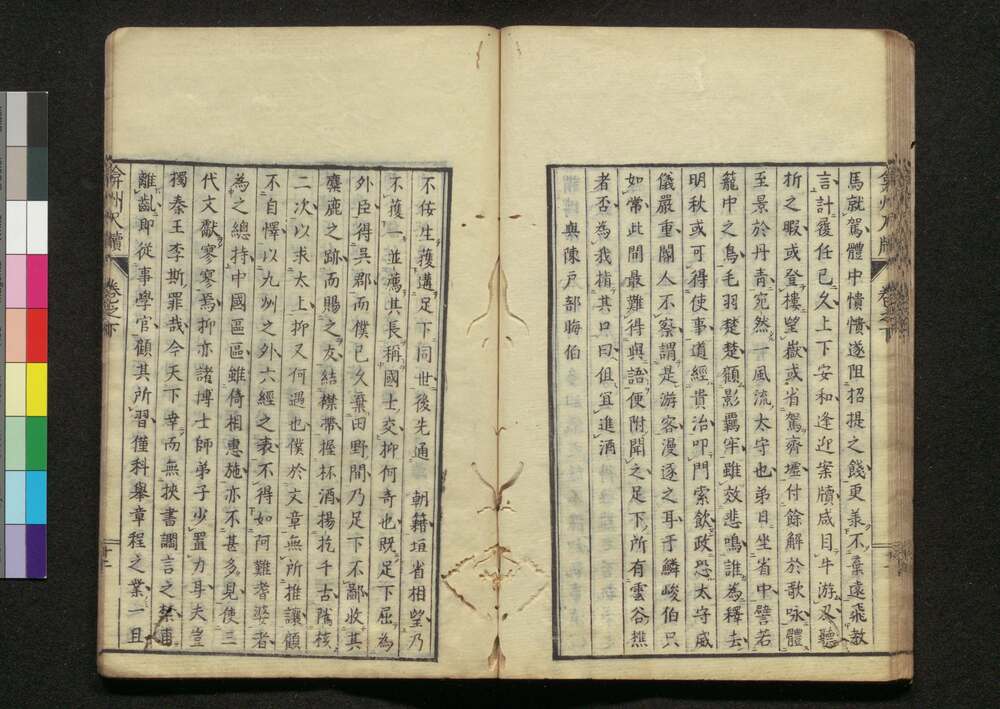 馬就駕體中憒憒遂阻招提之餞更羕不棄遠飛教
言計履任已久上下安和逢迎案牘咸目牛游刃聽
折之暇或登樓望嶽或省駕齊壚付餘解於歌咏體
至景於丹青宛然一風流太守也弟日坐省中譬若
籠中之鳥毛羽楚楚顧影羈牢雖效悲鳴誰為釋去
明秋或可得使事道經貴治叩門索飲政恐太守威
儀嚴重閽人不察謂是游客漫逐之耳于鱗峻伯只
如常此間最難得與語便附聞之足下所有雲谷樵
者否為我指其口曰但宜進酒
與陳戶部晦伯
不佞生獲遘足下同世後先通 朝籍垣省相望乃
不獲一並薦其長稱國士交抑何奇也既足下屈為
外臣得吳郡而僕已久棄田野間乃足下不鄙收其
麋鹿之跡而賜之友結襟帶握杯酒揚扢千古隲核
二次以求太上抑又何過也僕於文章無所推讓顧
不自懌以九州之外六經之表不得如阿難耆婆者
為之總持中國區區雖倚相惠施亦不甚多見使三
代文獻寥寥焉抑亦諸博士師弟子少置力耳夫豈
獨秦王李斯罪哉今天下幸而無挾書謫言之禁甫
離齔即從事學官顧其所習僅科舉章程之業一且
弇州尺牘
卷之下